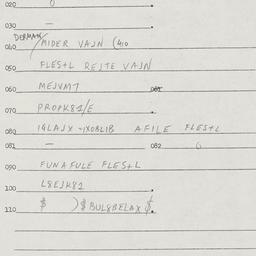 020 0
030 —
040 MIDER VAJN
050 FLES+L REJTE VAJN
060 MEJVM7
070 PROPK81/E
080 IGLAJX-IXOBLIB AFILE FLES+L
081 — 082 0
090 FUNAFULE FLES+L
100 L8EJK81
110 $ )$BUL8BELAX $